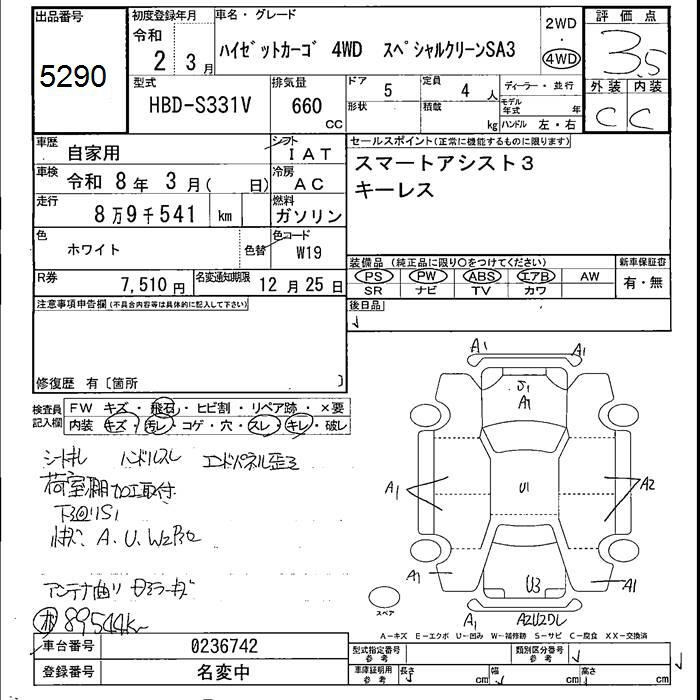 出品番号
5290
初度登録年月
令和
2 3月
車名・グレード
ハイゼットカーゴ 4WD スペシャルクリーンSA3
2WD
・
4WD
評価点
3.5
外装 内装
C C
型式
HBD-S331V
排気量
660
CC
ドア 5
形状
定員 4人
積載 kg
ディーラー・並行
モデル年式 年
ハンドル 左・右
車歴 自家用
シフト
IAT
車検 令和 8年 3月( 日)
冷房
AC
走行 8万9千541 km
燃料
ガソリン
色 ホワイト 色替
色コード
W19
R券 7,510円
名変通知期限 12月25日
セールスポイント(正常に機能するものに限ります)
スマートアシスト3
キーレス
装備品(純正品に限り○をつけてください)
PS PW ABS エアB AW
SR ナビ TV カワ
新車保証書
有・無
後日品
注意事項申告欄(不具合内容等は具体的に記入して下さい)
修復歴 有〔箇所 〕
検査員記入欄
FW キズ・飛石・ヒビ割・リペア跡・×要
内装 キズ・汚レ・コゲ・穴・スレ・キレ・破レ
シートキレ ハンドルスレ エンドパネル歪ミ
荷室棚加工取付
下回リS1
A.U.W2
アンテナ曲リ
89544K
A1 A1
J1
A1
A1
U1
A2
A1
U3
A1
A1
A2U2
スペア
A−キズ E−エクボ U−凹み W−補修跡 S−サビ C−腐食 XX−交換済
車台番号 0236742
登録番号 名変中
型式指定番号
参考
類別区分番号
参考
車庫証明用
参考
長さ cm
幅 cm
高さ cm